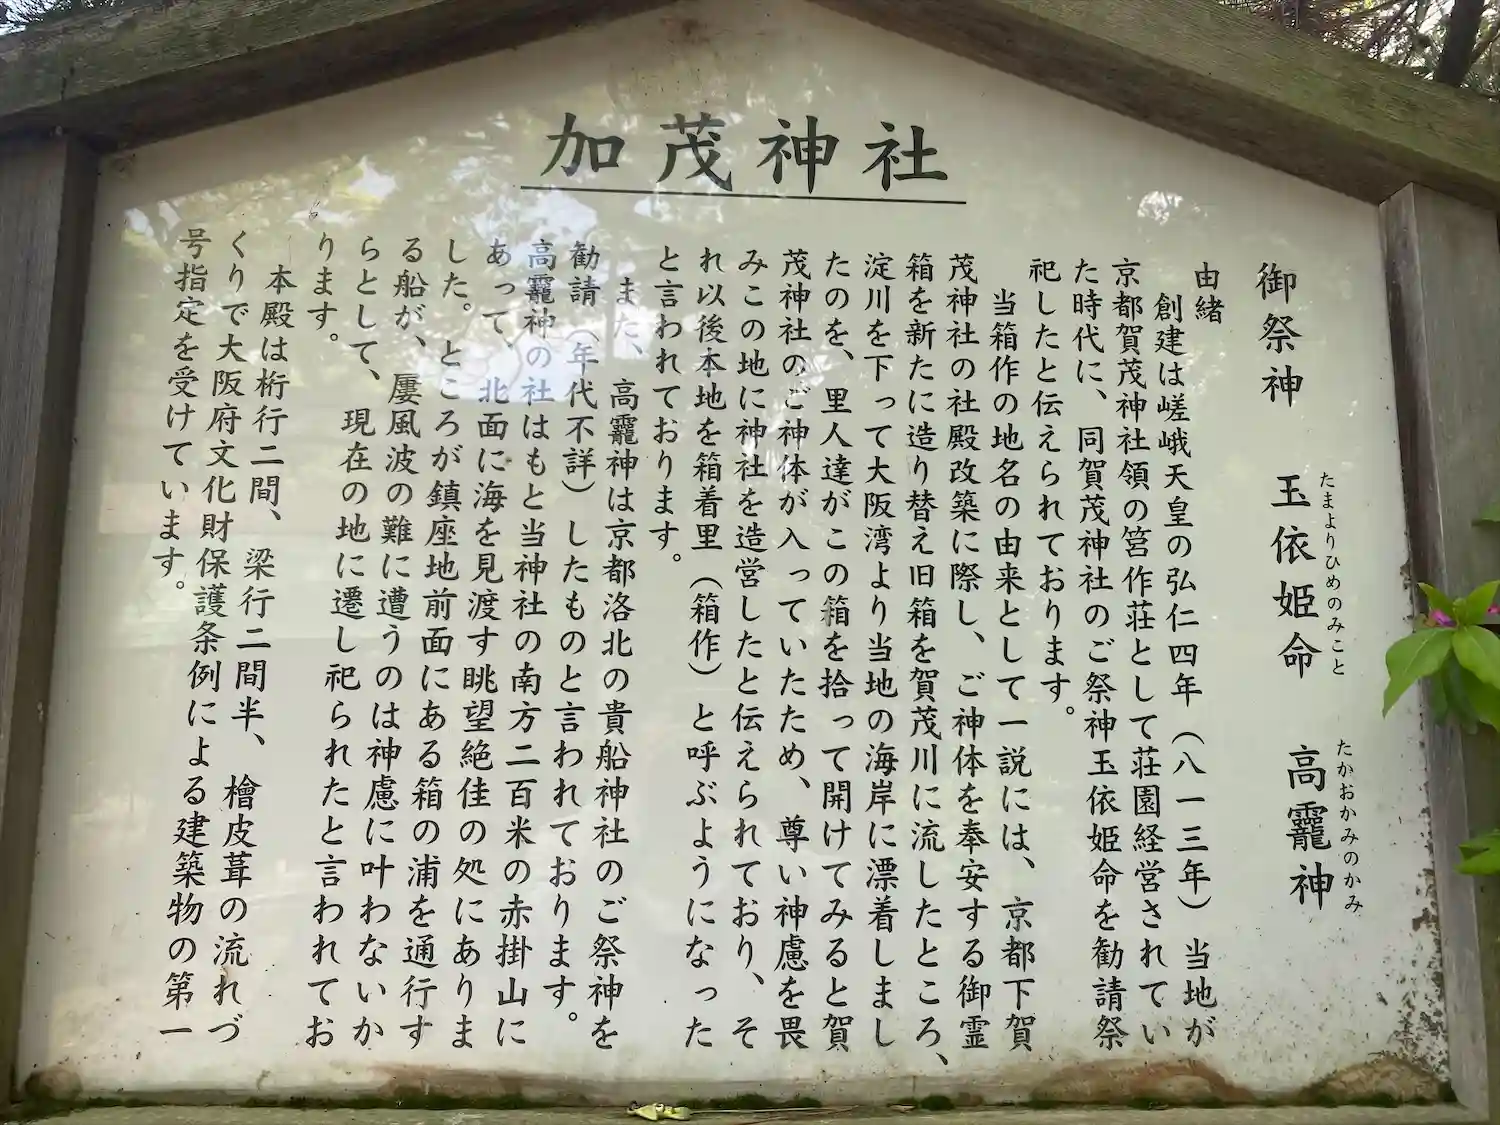 加茂神社
御祭神　玉依姫命　高龗神
たまよりひめのみこと
たかおかみのかみ
由緒
創建は嵯峨天皇の弘仁四年（八一三年）当地が
京都賀茂神社領の筥作荘として荘園経営されてい
た時代に、同賀茂神社のご祭神玉依姫命を勧請祭
祀したと伝えられております。
当箱作の地名の由来として一説には、京都下賀
茂神社の社殿改築に際し、ご神体を奉安する御霊
箱を新たに造り替え旧箱を賀茂川に流したところ、
淀川を下って大阪湾より当地の海岸に漂着しまし
たのを、里人達がこの箱を拾って開けてみると賀
茂神社のご神体が入っていたため、尊い神慮を畏
みこの地に神社を造営したと伝えられており、そ
れ以後本地を箱着里（箱作）と呼ぶようになった
と言われております。
また、高龗神は京都洛北の貴船神社のご祭神を
勧請（年代不詳）したものと言われております。
高龗神の社はもと当神社の南方二百米の赤掛山に
あって、北面に海を見渡す眺望絶佳の処にありま
した。ところが鎮座地前面にある箱の浦を通行す
る船が、屢風波の難に遭うのは神慮に叶わないか
らとして、現在の地に遷し祀られたと言われてお
ります。
本殿は桁行二間、梁行二間半、檜皮葺の流れづ
くりで大阪府文化財保護条例による建築物の第一
号指定を受けています。